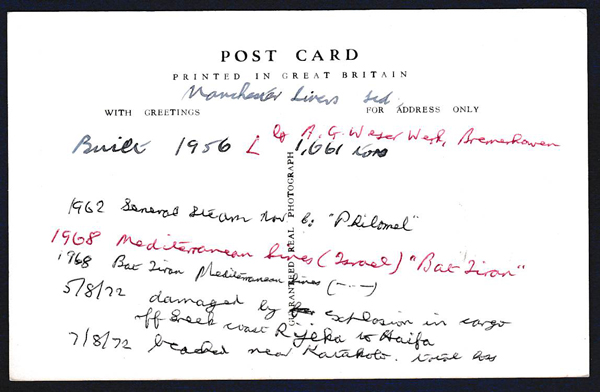 POST CARD
PRINTED IN GREAT BRITAIN
Manchester Liners Ltd.
WITH GREETINGS
FOR ADDRESS ONLY
by A. G. Weser Werk, Bremerhaven
Built 1956 1,661 tons
GUARANTEED REAL PHOTOGRAPH
1962 General Steam Nav Co "Philomel"
1968 Mediterranean Lines (Israel) "Bat Tiran"
1968 Bat Tiran Mediterranean Lines (-..-)
5/8/72 damaged by explosion in cargo
off Greek coast Rijeka to Haifa
7/8/72 beached near Katakolo. total loss